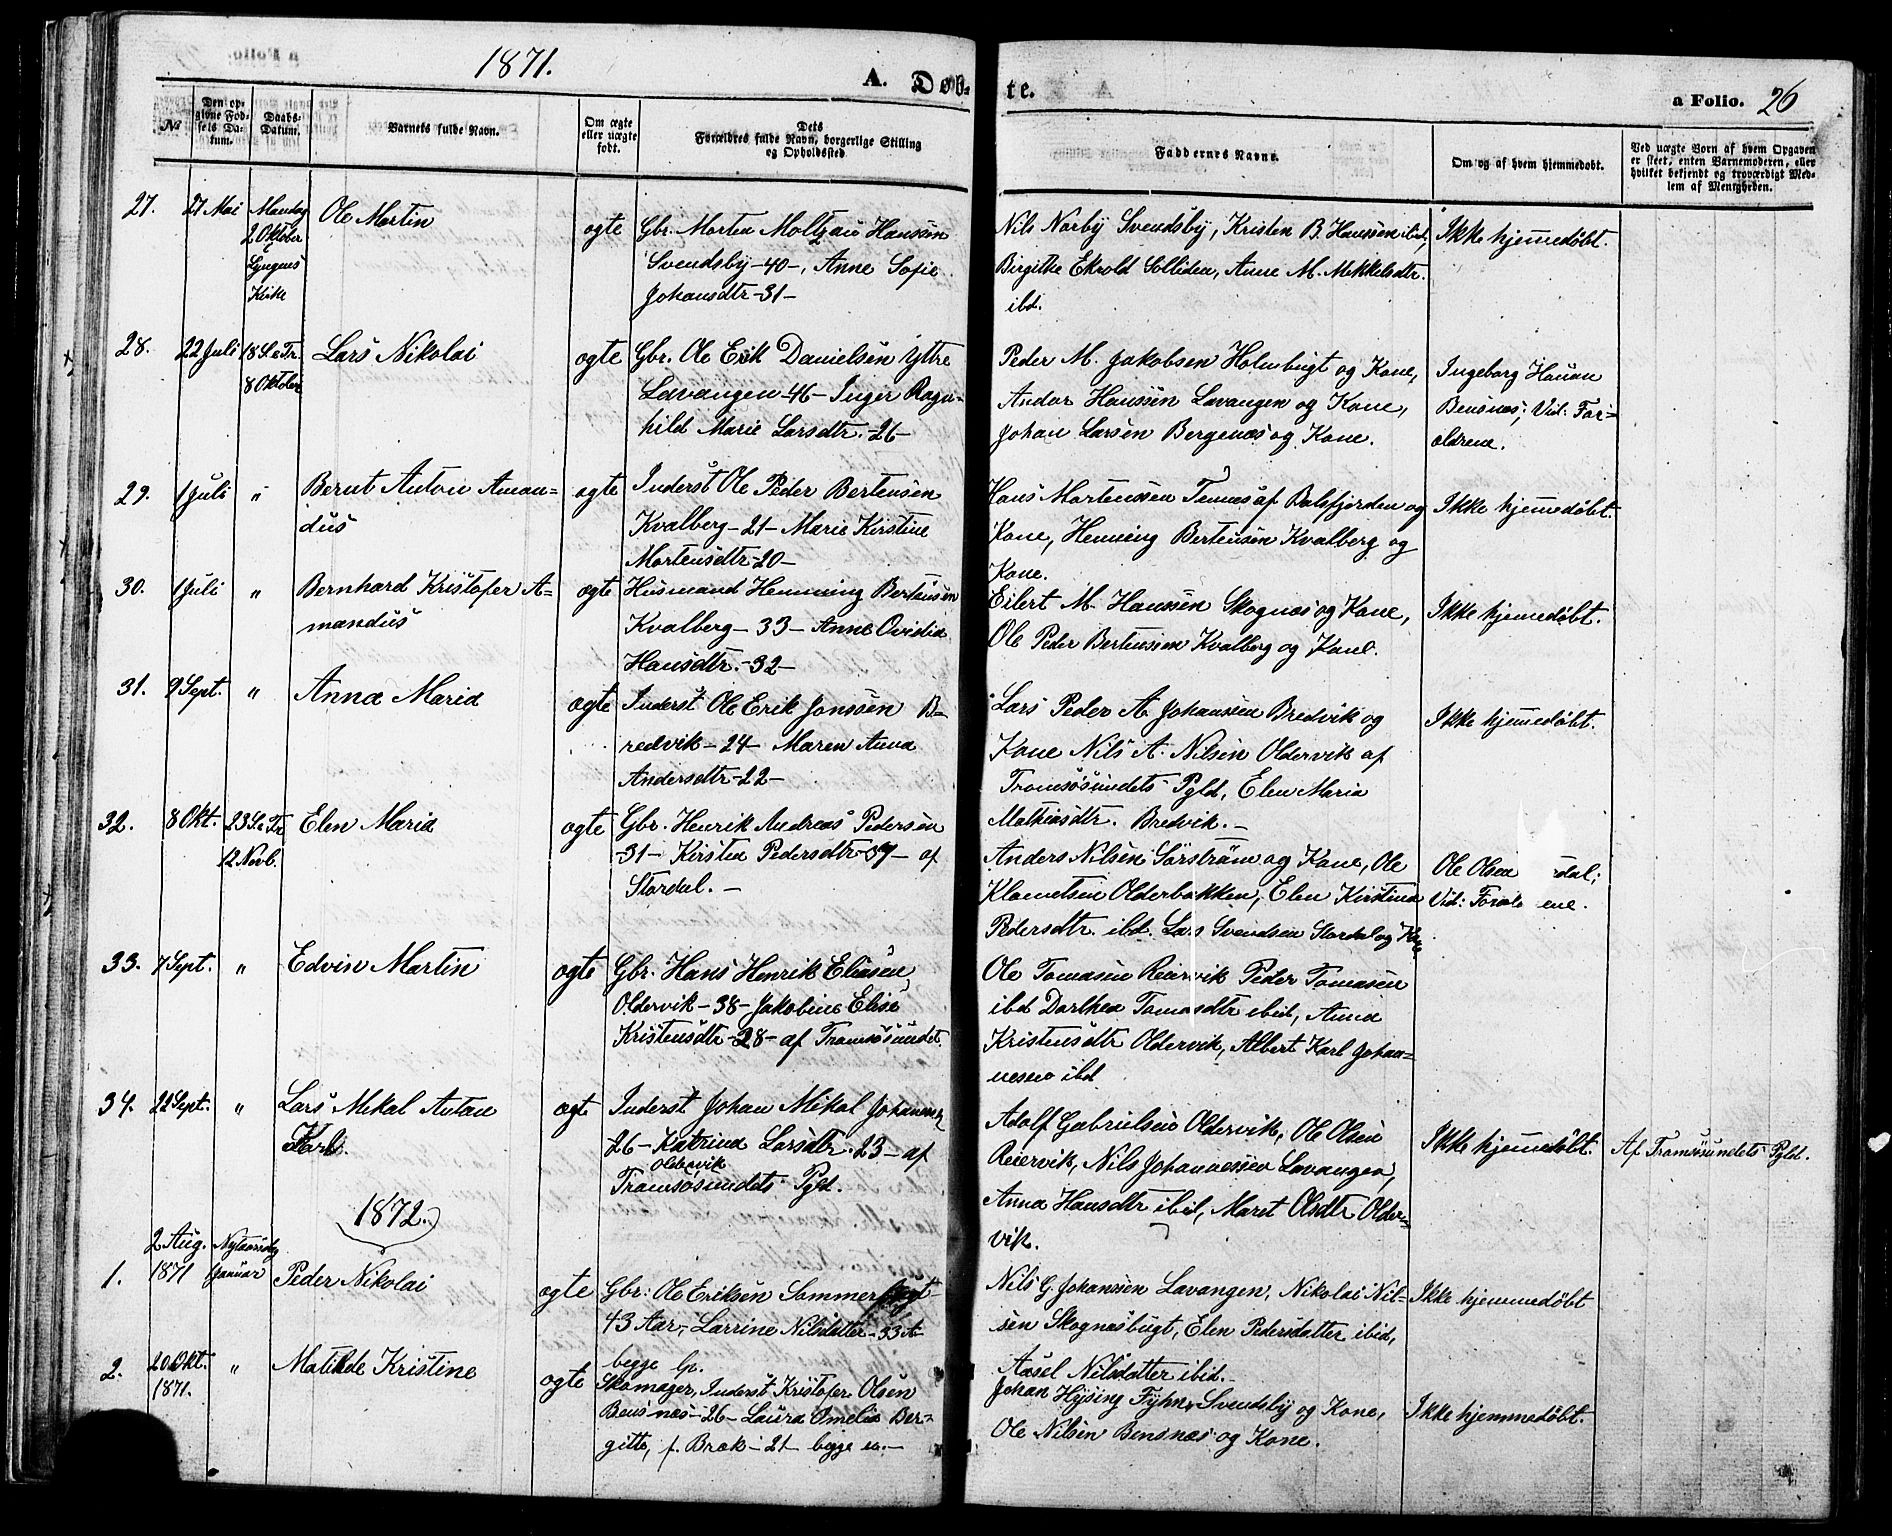 1871.
A. Døb-
te.
a Folio. 26
№
Den op-
givne Fød-
sels Da-
tum.
Daabs-
Datum.
Barnets fulde Navn.
Om ægte
eller uægte
født.
Dets
Forældres fulde Navn, borgerlige Stilling
og Opholdssted
Faddernes Navne.
Om og af hvem hjemmedøbt.
Ved uægte Børn af hvem Opgaven
er skeet, enten Barnemoderen, eller
hvilket bekjendt og troværdigt Med-
lem af Menigheden.
27.
27 Mai
Mandag
2 Oktober
Lyngens
Kirke
Ole Martin
ægte
Gbr. Morten Moltzau Hanssen
Svendsby -40-, Anne Sofie
Johansdtr -31-
Nils Norby Svendsby, Kristen B. Hanssen ibid,
Birgithe Ekrold Solliden, Anne M. Mikkelsdtr.
ibd.
Ikke hjemedøbt.
28.
22 Juli
18 S. e. Tr.
8 Oktober
Lars Nikolai
ægte
Gbr. Ole Erik Danielsen Yttre
Lavangen -46- Inger Ragn-
hild Marie Larsdtr. -26-
Peder M. Jakobsen Holmbugt og Kone,
Andor Hanssen Lavangen og Kone,
Johan Larsen Bergenæs og Kone.
Ingeborg Hauan
Bensnæs; Vid: For-
ældrene.
29.
1 Juli
"
Bernt Anton Aman-
dus
ægte
Inderst Ole Peder Bertensen
Kvalberg -21- Marie Kirstine
Mortensdtr -20-
Hans Mortenssen Tennes af Balsfjorden og
Kone, Henning Bertensen Kvalberg og
Kone.
Ikke hjemedøbt.
30.
1 Juli
"
Bernhard Kristofer A-
mandus
ægte
Husmand Henning Bertensen
Kvalberg -33- Anne Ovidia
Hansdtr. -32-
Eilert M. Hanssen Skognæs og Kone,
Ole Peder Bertenssen Kvalberg og Kone.
Ikke hjemedøbt.
31.
9 Sept.
"
Anna Maria
ægte
Inderst Ole Erik Jonssen B-
redvik -24- Maren Anna
Andersdtr -22-
Lars Peder A. Johanssen Bredvik og
Kone Nils A. Nilsen Oldervik af
Tromsøsundets Pgld, Elen Maria
Mathiasdtr. Bredvik. -
Ikke hjemedøbt.
32.
8 Okt.
23 S e Tr
12 Novb.
Elen Maria
ægte
Gbr. Henrik Andreas Pedersen
-31- Kirsten Pedersdtr -37- af
Stordal. -
Anders Nilsen Sørstrøm og Kone, Ole
Klemetsen Olderbakken, Elen Kirstina
Pedersdtr. ibd. Lars Svendsen Stordal og Kone
Ole Olsen rdal;
Vid: Foræl ene.
33.
7 Sept.
"
Edvin Martin
ægte
Gbr. Hans Henrik Eliasen
Oldervik -38- Jakobine Elise
Kristensdtr -28- af Tromsøsundet.
Ole Tomasen Reiervik Peder Tomasen
ibd Dorthea Tomasdtr ibid, Anna
Kristensdtr Oldervik, Albert Karl Johan-
nesen ibd
34.
22 Sept.
"
Lars Mikal Anton
Karl.
ægte
Inderst Johan Mikal Johannesen
-26- Katrina Larsdtr. 23- af
Oldervik
Tromsøsundets Pgld.
Adolf Gabrielsen Oldervik, Ole Olsen
Reiervik, Nils Johannessen Lavangen,
Anna Hansdtr ibid, Maret Olsdtr Older-
vik.
Ikke hjemedøbt.
Af Tromsøsundets Pgld.
1872.
1.
2 Aug.
1871
Nytaarsdag
1 Januar
Peder Nikolai
ægte
Gbr: Ole Eriksen Sommerbugt
43 Aar, Larrine Nilsdatter -33 A-
begge lp.
Nils G. Johanssen Lavangen, Nikolai Nil-
sen Skognæsbugt, Elen Pedersdatter ibid,
Aasel Nilsdatter ibid. -
Ikke hjemmedøbt
2.
20 Okt.
1871.
"
Matilde Kristine
ægte
Skomager, Inderst Kristofer Olsen
Bensnæs -26- Laura Amelia Ber-
gitte, f. Bræk -21- begge
Johan Hysing Fyhn, Svendsby og Kone,
Ole Nilsen Bensnæs og Kone.
Ikke hjemmedøbt.